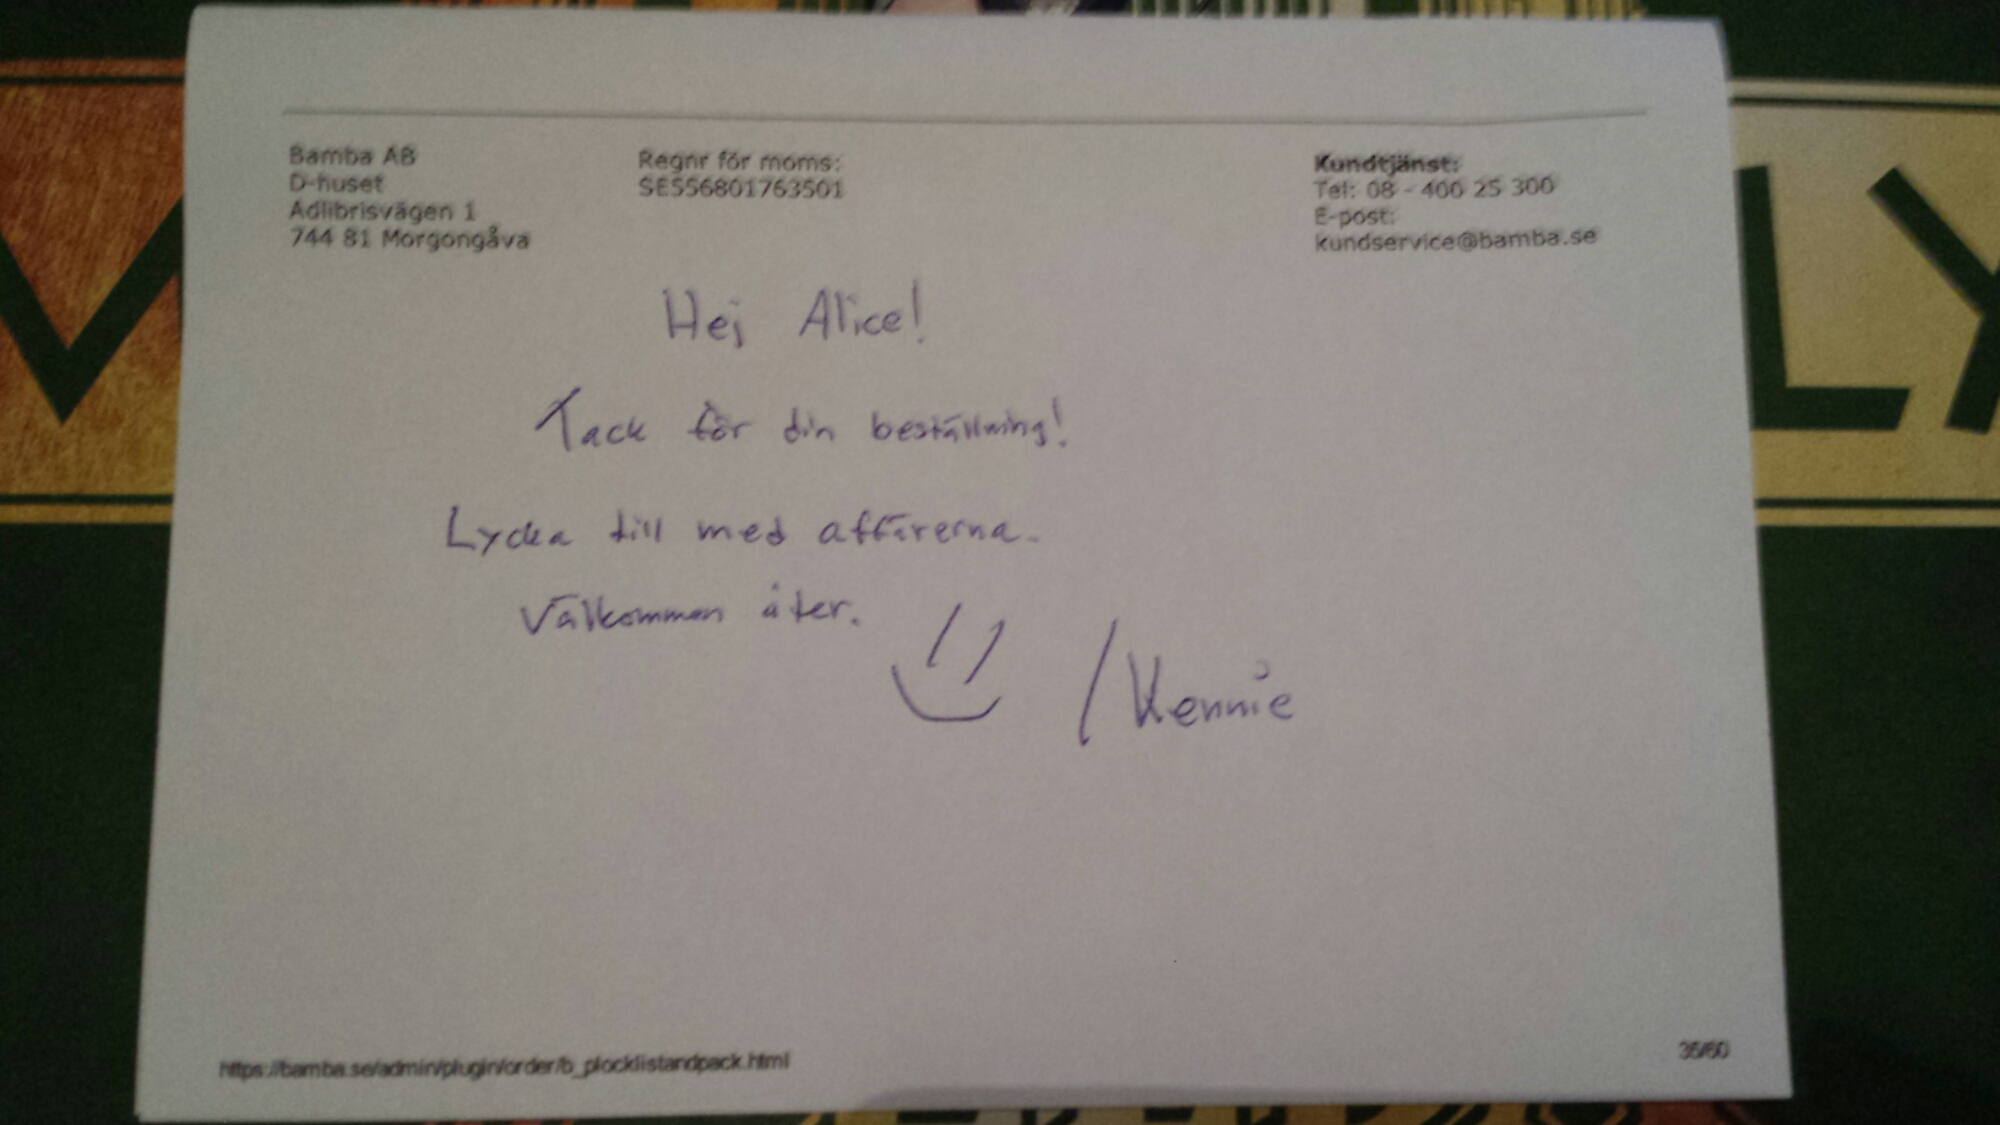 Bamba AB
D-huset
Adlibrisvägen 1
744 81 Morgongåva
Regnr för moms:
SE556801763501
Kundtjänst:
Tel: 08 - 400 25 300
E-post:
kundservice@bamba.se
Hej Alice!
Tack för din beställning!
Lycka till med affärerna.
Välkommen åter.
/Kennie
https://bamba.se/admin/plugin/order/b_plocklistandpack.html
35/60
LY